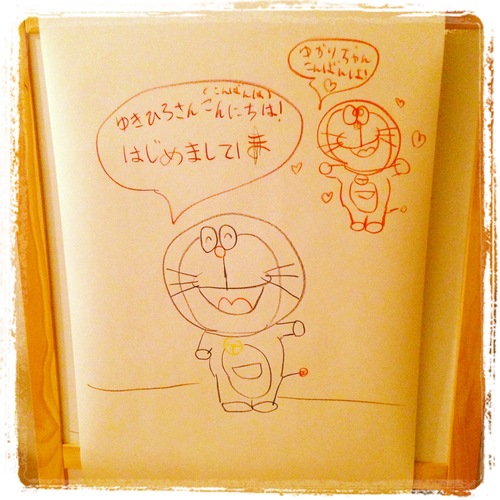 (こんばんは)
ゆきひろさんこんにちは!
はじめまして!
ゆかりちゃん
こんばんは!